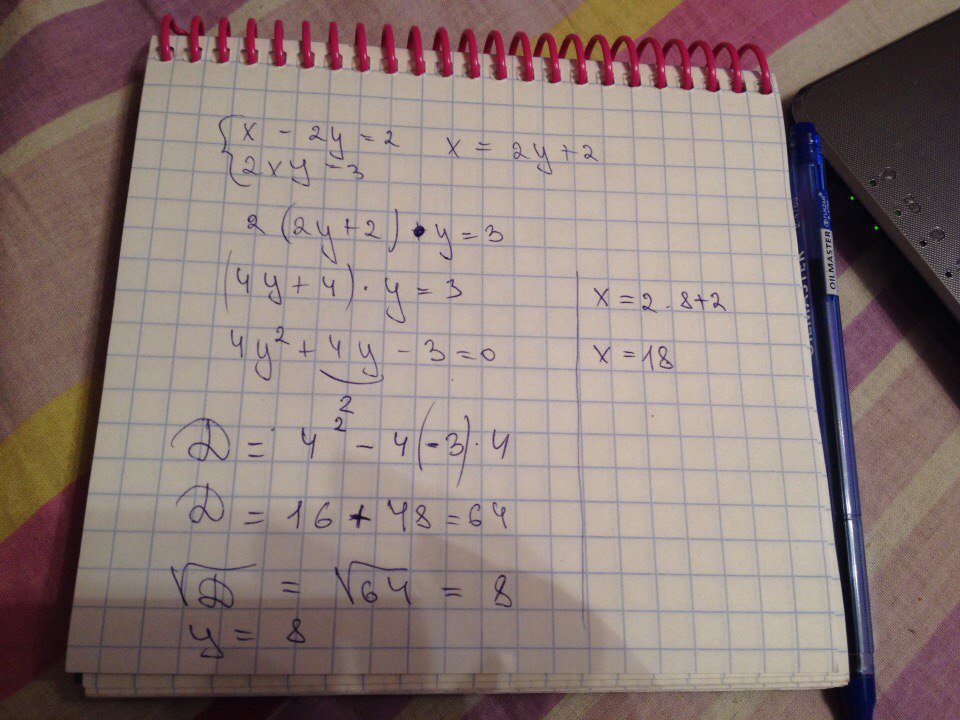 x - 2y = 2    x = 2y + 2
2xy = 3
2(2y+2)·y = 3
(4y+4)·y = 3
4y² + 4y - 3 = 0
2
D = 4² - 4(-3)·4
D = 16 + 48 = 64
√D = √64 = 8
y = 8
x = 2·8+2
x = 18
OILMASTER